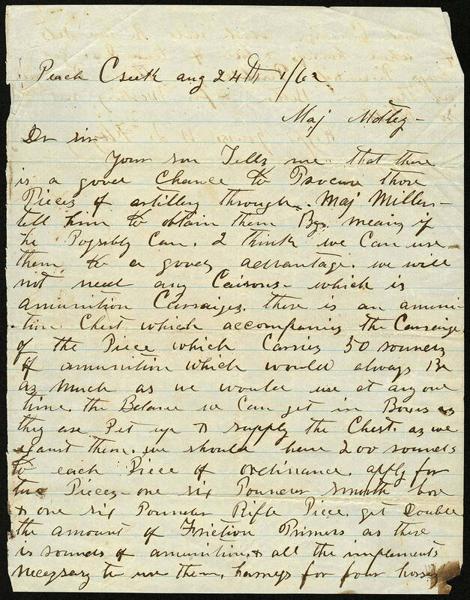 Peach Creek aug 24th 1/62
Maj Motley-
Dr sir
Your son Tells me that there
is a good Chance to Procure those
Pieces of artillery through Maj Miller-
tell him to obtain them By means if
he Possibly Can. I think we Can use
them to a good advantage. we will
not need any Caisons- which is
amunition Carraiges. there is an amuni-
tion Chest which accompanies the Carraige
of the Piece which Carries 50 rounds
of amunition which would always Be
as much as we would use at any one
time. the Balance we Can get in Boxes as
they are Put up to supply the Chest. as we
against them. we should have 200 rounds
to each Piece of ordinance. apply for
two Pieces- one six Pounder smooth bore
& one six Pounder Rifle Piece. get double
the amount of Friction Primers as there
is rounds of amunition & all the impliments
necessary to use them, harness for four horses